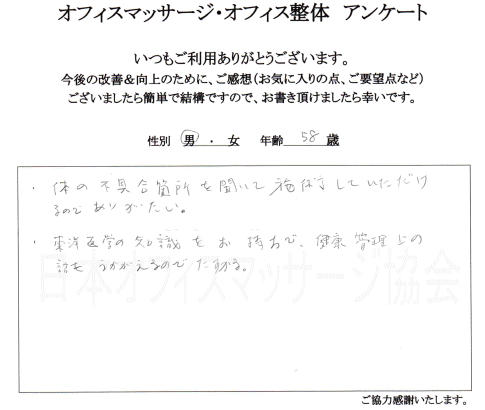 オフィスマッサージ・オフィス整体 アンケート
いつもご利用ありがとうございます。
今後の改善＆向上のために、ご感想（お気に入りの点、ご要望点など）
ございましたら簡単で結構ですので、お書き頂けましたら幸いです。
性別 男 ・ 女 年齢 58 歳
・体の不具合箇所を聞いて施術していただけ
るのでありがたい。
・東洋医学の知識をお持ちで、健康管理上の
話もうかがえるのでたすかる。
日本オフィスマッサージ協会
ご協力感謝いたします。